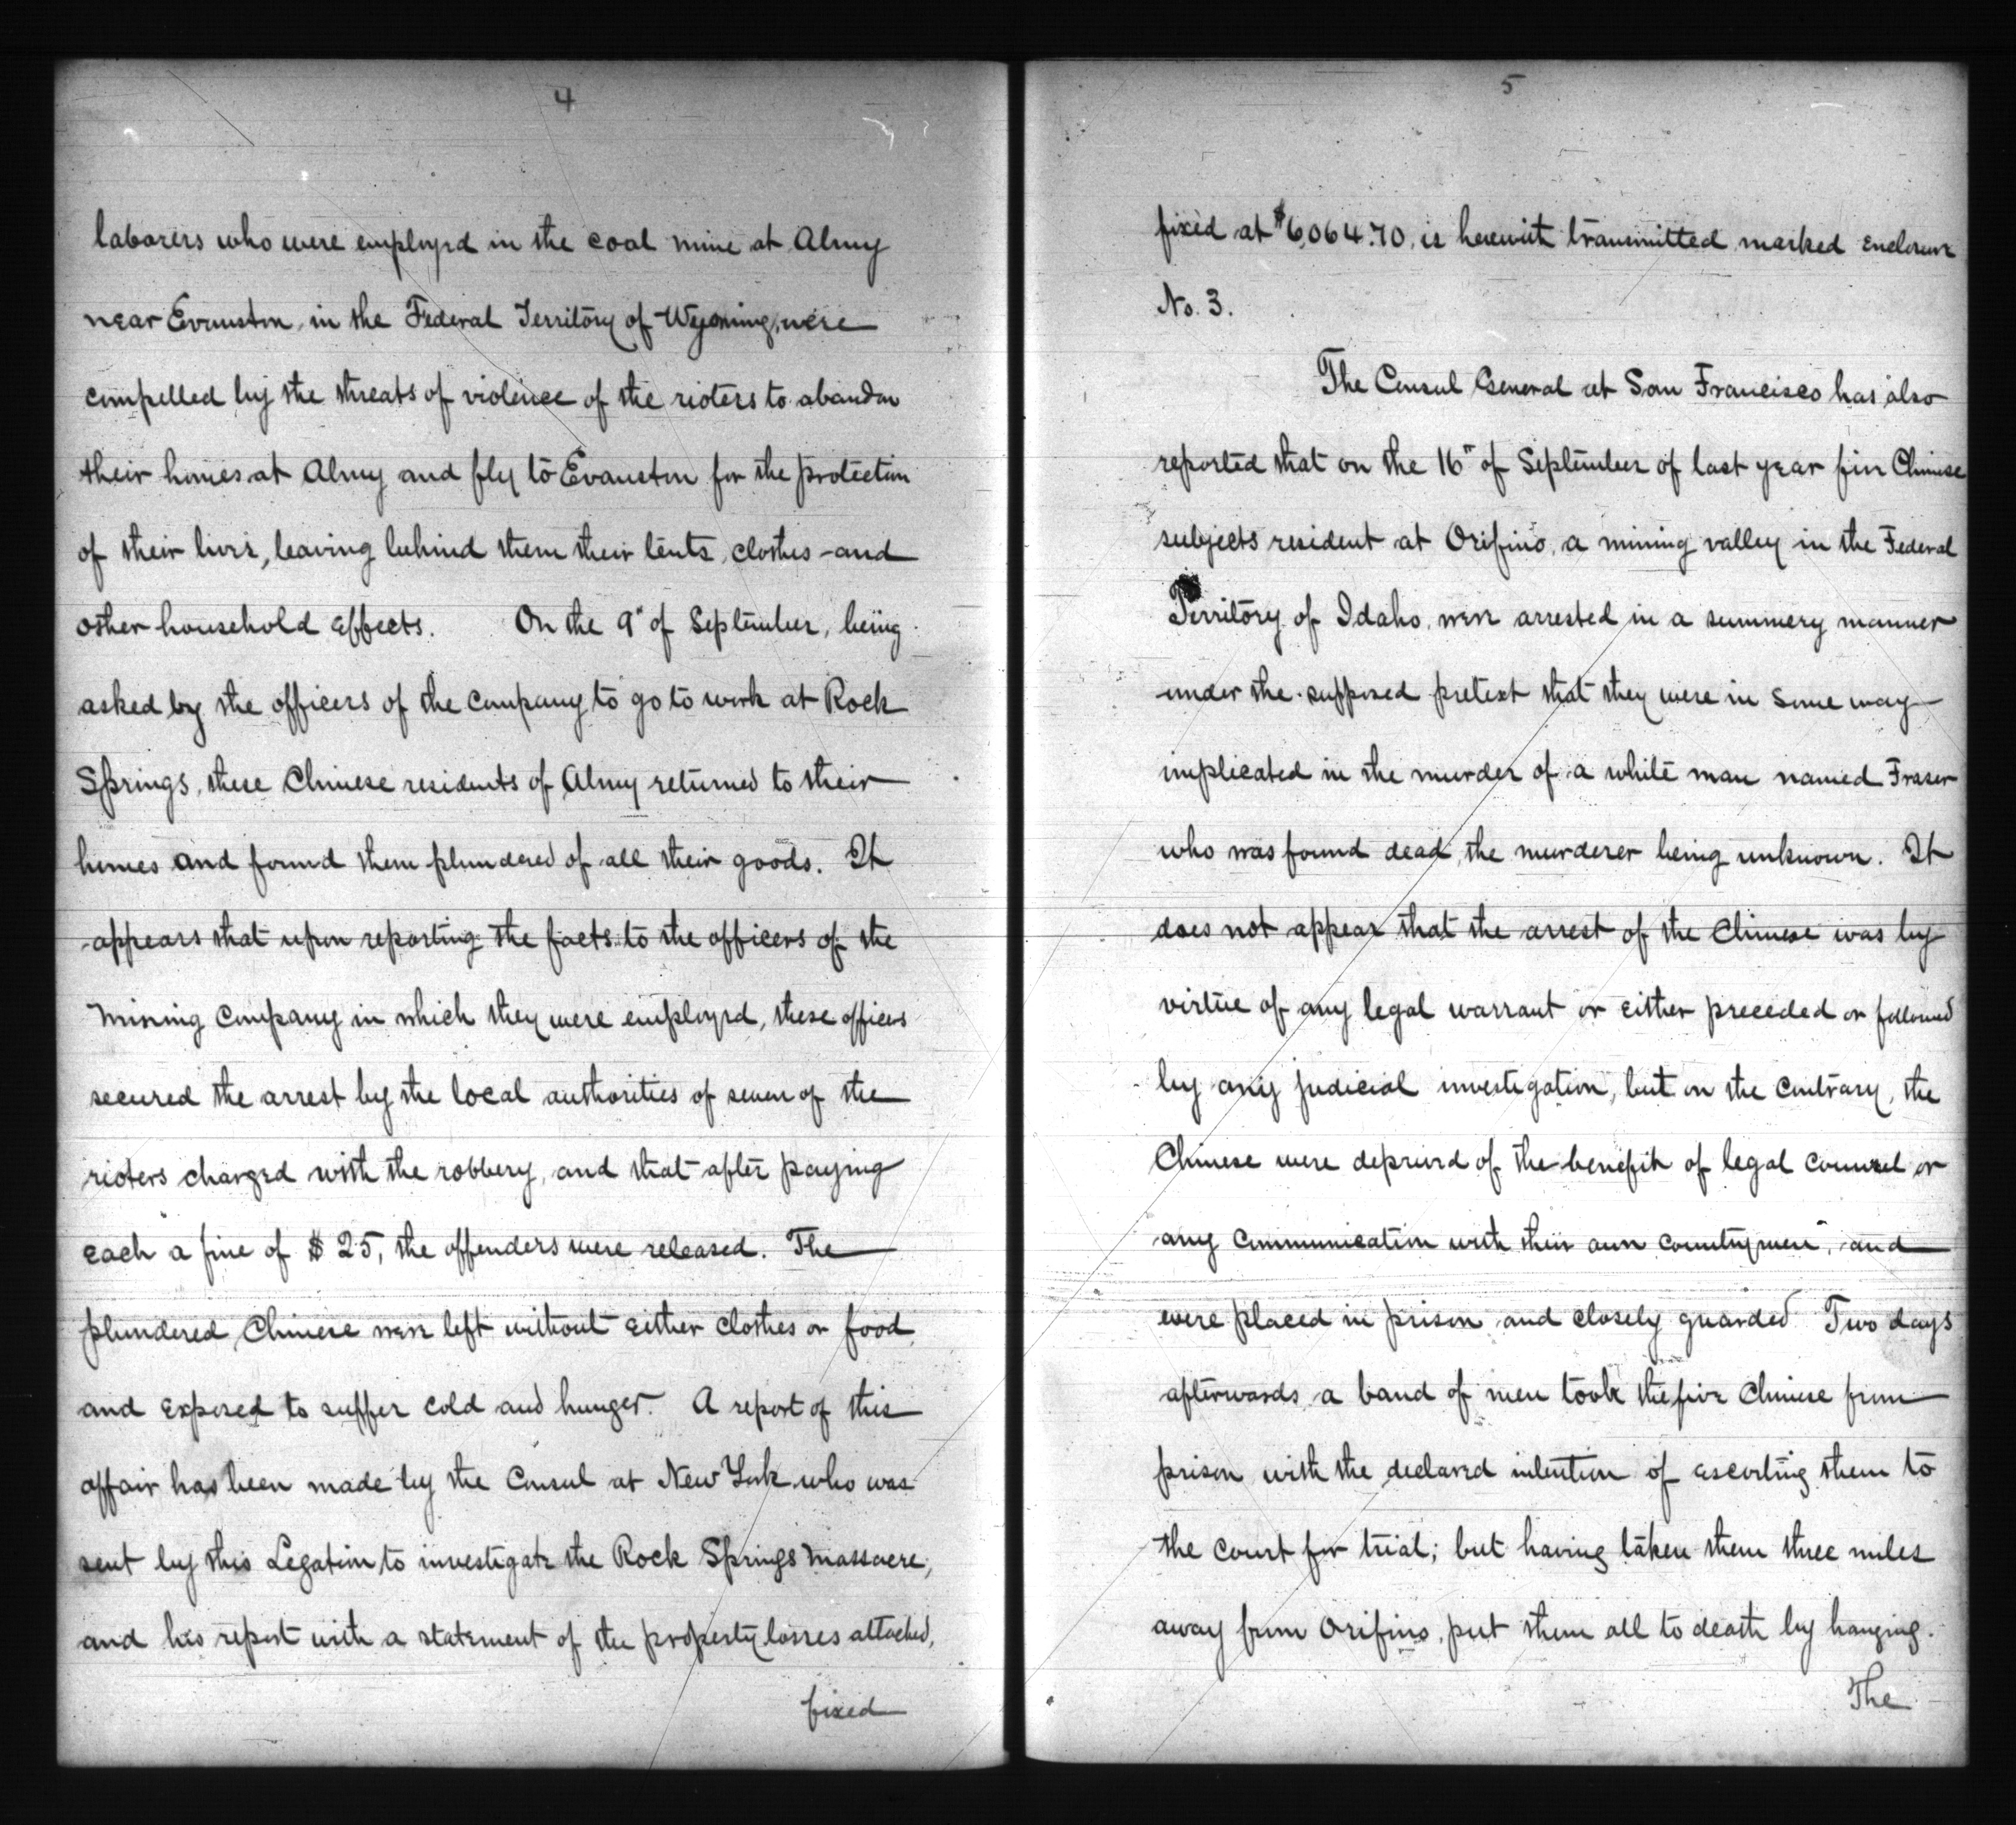 4
laborers who were employed in the coal mine at Almy
near Evanston, in the Federal Territory of Wyoming, were
compelled by the threats of violence of the rioters to abandon
their homes at Almy and fly to Evanston for the protection
of their lives, leaving behind them their tents, clothes and
other household effects. On the 9" of September, being
asked by the officers of the Company to go to work at Rock
Springs, these Chinese residents of Almy returned to their
homes and found them plundered of all their goods. It
appears that upon reporting the facts to the officers of the
Mining Company in which they were employed, these officers
secured the arrest by the local authorities of seven of the
rioters charged with the robbery, and that after paying
each a fine of $25, the offenders were released. The
plundered Chinese were left without either clothes or food,
and exposed to suffer cold and hunger. A report of this
affair has been made by the Consul at New York who was
sent by this Legation to investigate the Rock Springs Massacre,
and his report with a statement of the property losses attached,
fixed
5
fixed at $6,064.70, is herewith transmitted marked enclosure
No. 3.
The Consul General at San Francisco has also
reported that on the 16" of September of last year five Chinese
subjects resident at Orifino, a mining valley in the Federal
Territory of Idaho, were arrested in a summery manner
under the supposed pretext that they were in some way
implicated in the murder of a white man named Fraser
who was found dead, the murderer being unknown. It
does not appear that the arrest of the Chinese was by
virtue of any legal warrant or either preceded or followed
by any judicial investigation, but on the contrary, the
Chinese were deprived of the benefit of legal counsel or
any communication with their own countrymen, and
were placed in prison and closely guarded Two days
afterwards a band of men took the five Chinese from
prison with the declared intention of escorting them to
the court for trial; but having taken them three miles
away from Orifino, put them all to death by hanging.
The